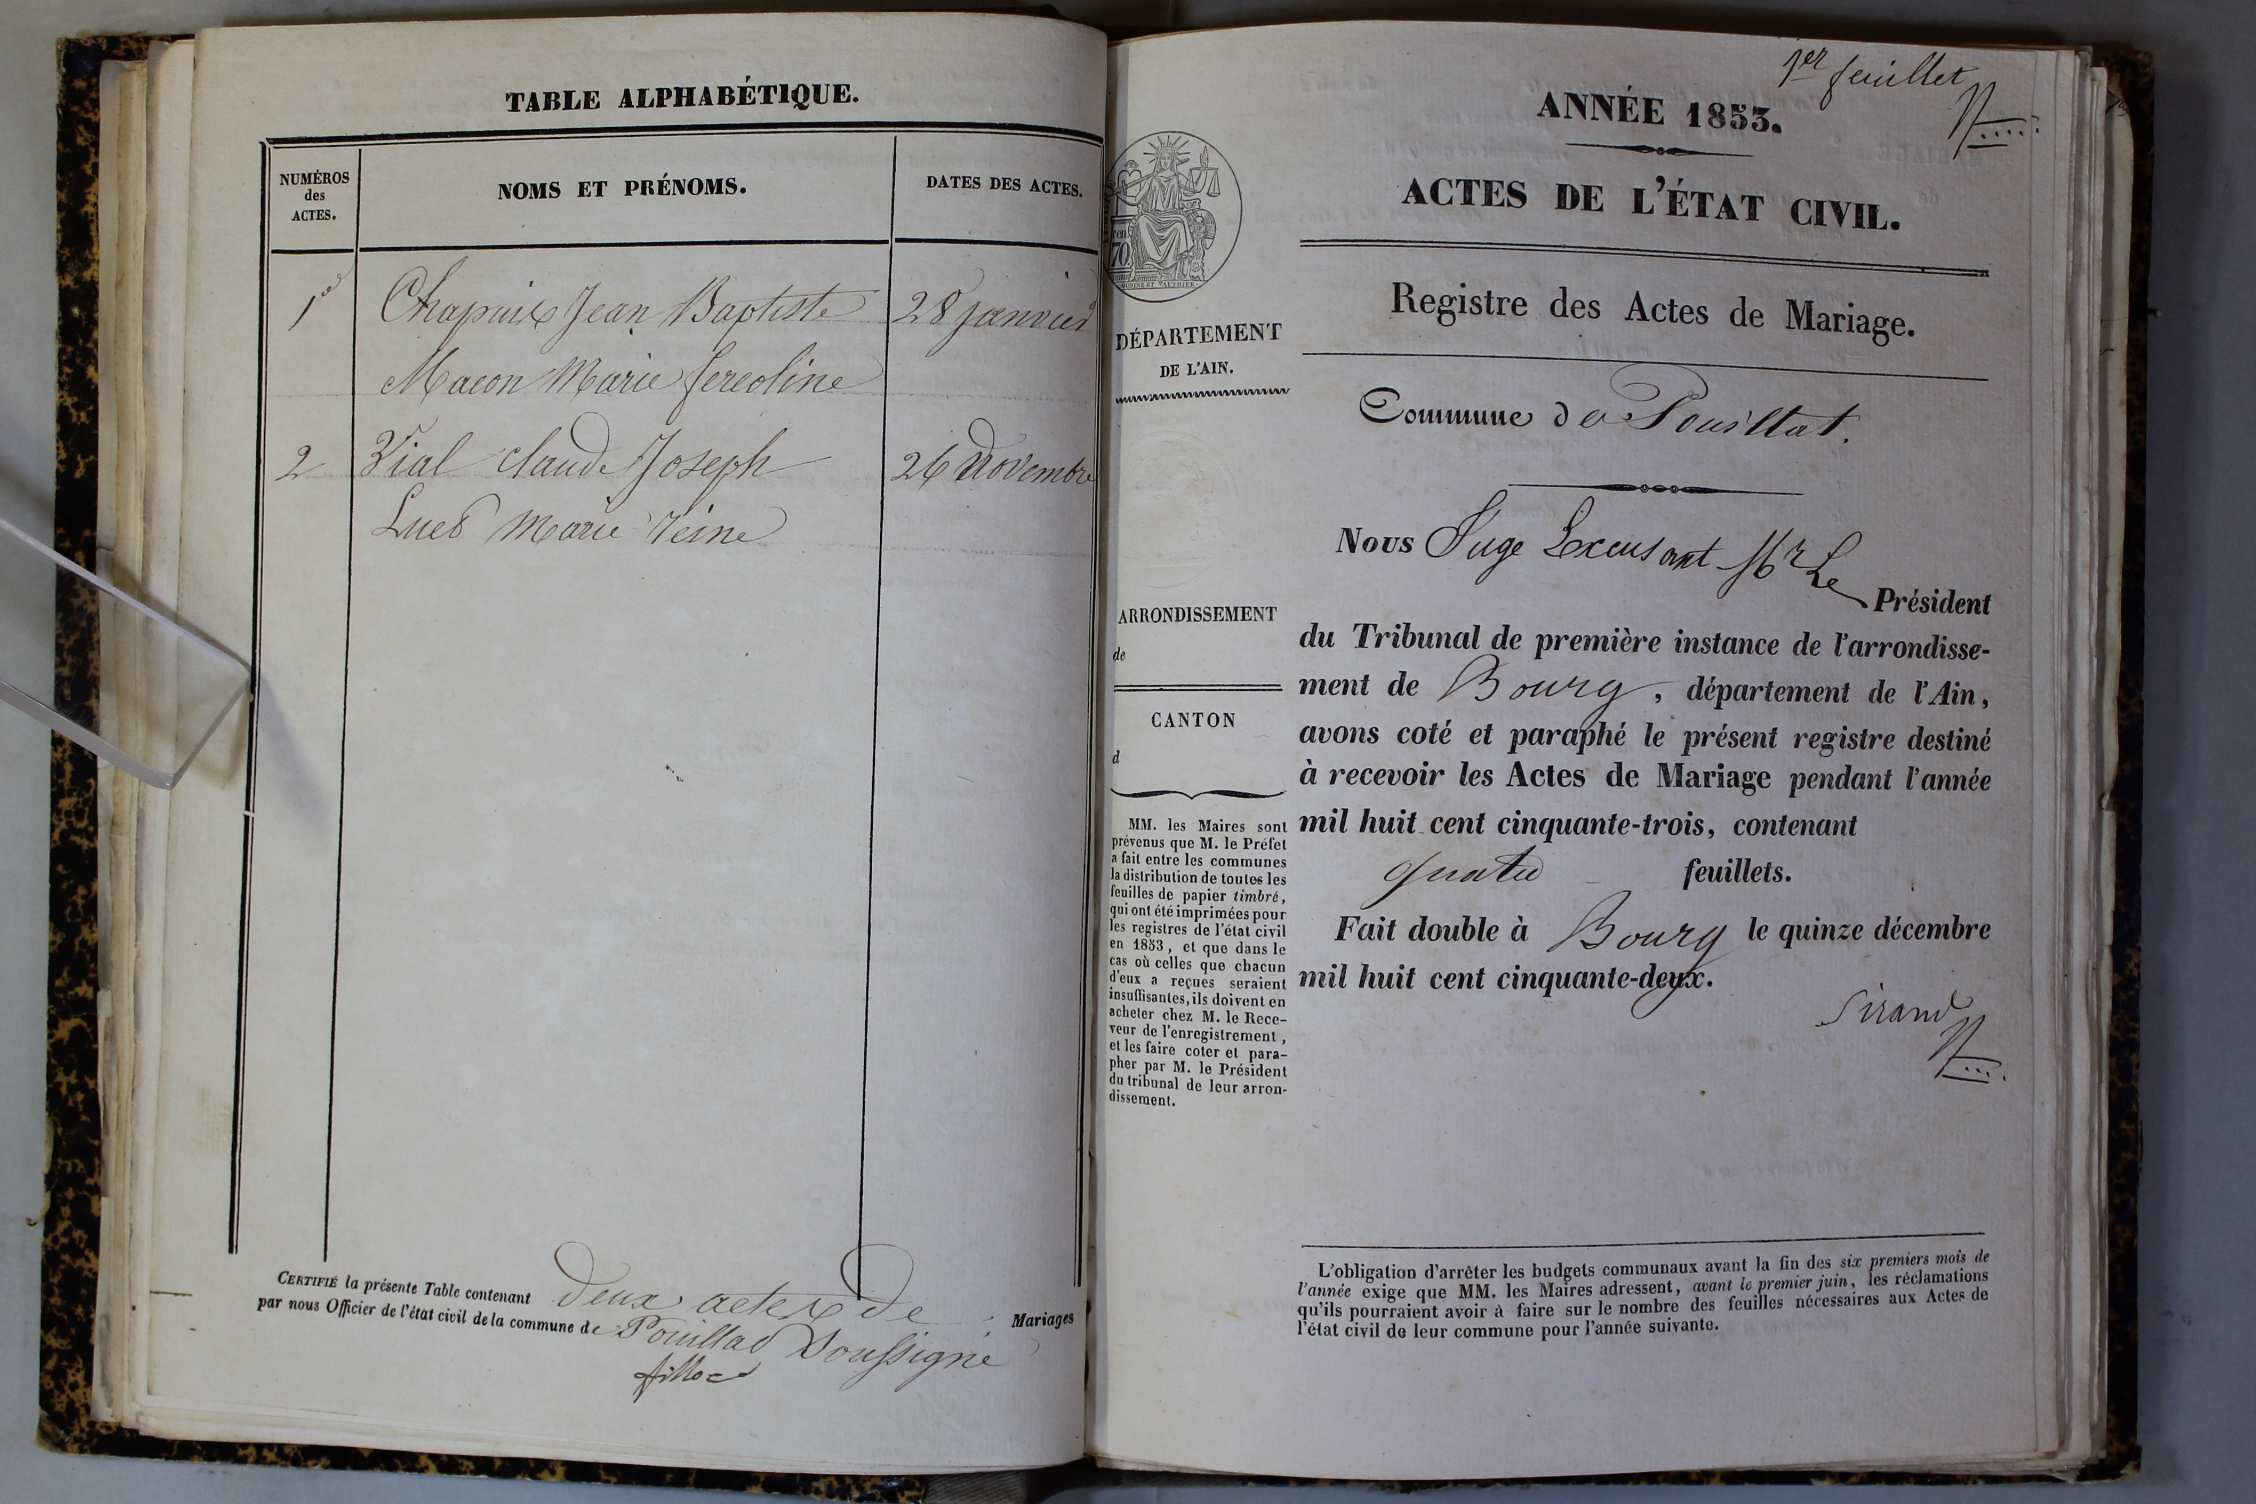 TABLE ALPHABÉTIQUE.
NUMÉROS
des
ACTES.
NOMS ET PRÉNOMS.
DATES DES ACTES.
1er Chapuix Jean Baptiste 28 janvier
Macon Marie fereoline
2 Vial claude Joseph 26 Novembre
Marie reine
CERTIFIÉ la présente Table contenant deux actes de Mariages
par nous Officier de l'état civil de la commune de Pouillad Soussigné
1er feuillet
ANNÉE 1853.
ACTES DE L'ÉTAT CIVIL.
Registre des Actes de Mariage.
DÉPARTEMENT
DE L'AIN.
Commune de Pouillat.
ARRONDISSEMENT
de
CANTON
d
MM. les Maires sont
prévenus que M. le Préfet
a fait entre les communes
la distribution de toutes les
feuilles de papier timbré,
qui ont été imprimées pour
les registres de l'état civil
en 1853, et que dans le
cas où celles que chacun
d'eux a reçues seraient
insuffisantes, ils doivent en
acheter chez M. le Rece-
veur de l'enregistrement,
et les faire coter et para-
pher par M. le Président
du tribunal de leur arron-
dissement.
Nous Juge Excusant Mr Le
Président
du Tribunal de première instance de l'arrondisse-
ment de Bourg, département de l'Ain,
avons coté et paraphé le présent registre destiné
à recevoir les Actes de Mariage pendant l'année
mil huit cent cinquante-trois, contenant
quatre feuillets.
Fait double à Bourg le quinze décembre
mil huit cent cinquante-deux.
Sirand
L'obligation d'arrêter les budgets communaux avant la fin des six premiers mois de
l'année exige que MM. les Maires adressent, avant le premier juin, les réclamations
qu'ils pourraient avoir à faire sur le nombre des feuilles nécessaires aux Actes de
l'état civil de leur commune pour l'année suivante.